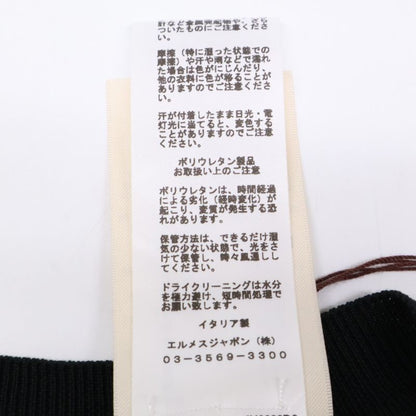 ついたものにご注意く
ださい。
摩擦（特に湿った状態での
摩擦）や汗や雨などで濡れ
た場合は色がにじんだり、
他の衣料に色が移ることが
ありますのでご注意くださ
い。
汗が付着したまま日光・電
灯光に当てると、変色する
ことがありますのでご注意
ください。
ポリウレタン製品
お取扱い上のご注意
ポリウレタンは、時間経過
による劣化（経時変化）が
起こり、変質が発生する恐
れがあります。
保管方法は、できるだけ湿
気の少ない状態で、光をさ
けて保管し、時々風通しし
てください。
ドライクリーニングは水分
を極力避け、短時間処理で
お願い致します。
イタリア製
エルメスジャポン（株）
０３-３５６９-３３００